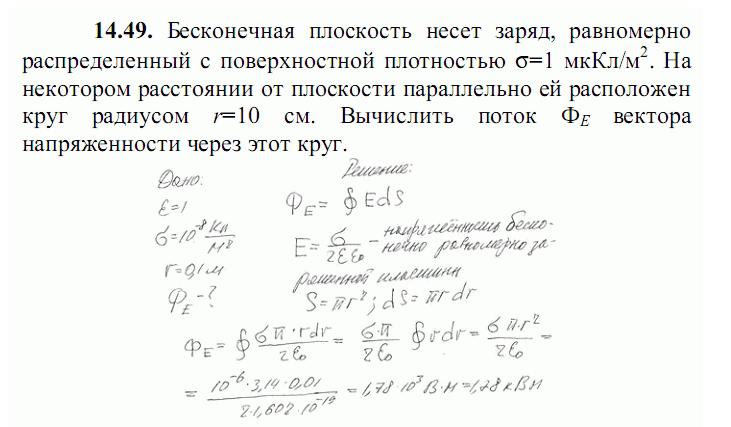 14.49. Бесконечная плоскость несет заряд, равномерно
распределенный с поверхностной плотностью σ=1 мкКл/м². На
некотором расстоянии от плоскости параллельно ей расположен
круг радиусом r=10 см. Вычислить поток Φ_E вектора
напряженности через этот круг.
Дано:
ε=1
σ=10⁻⁸ Кл/м²
r=0,1м
Φ_E-?
Решение:
Φ_E = ∮EdS
E = σ/2εε₀ – напряжённость беско-
нечно равномерно за-
ряженной пластины
S=πr²; dS=πr dr
Φ_E = ∮ σπ·rdr/2ε₀ = σ·π/2ε₀ ∮rdr = σπ·r²/2ε₀ =
= 10⁻⁶·3,14·0,01/2·1,602·10⁻¹⁹ = 1,78·10³ В·м =1,78 кВм